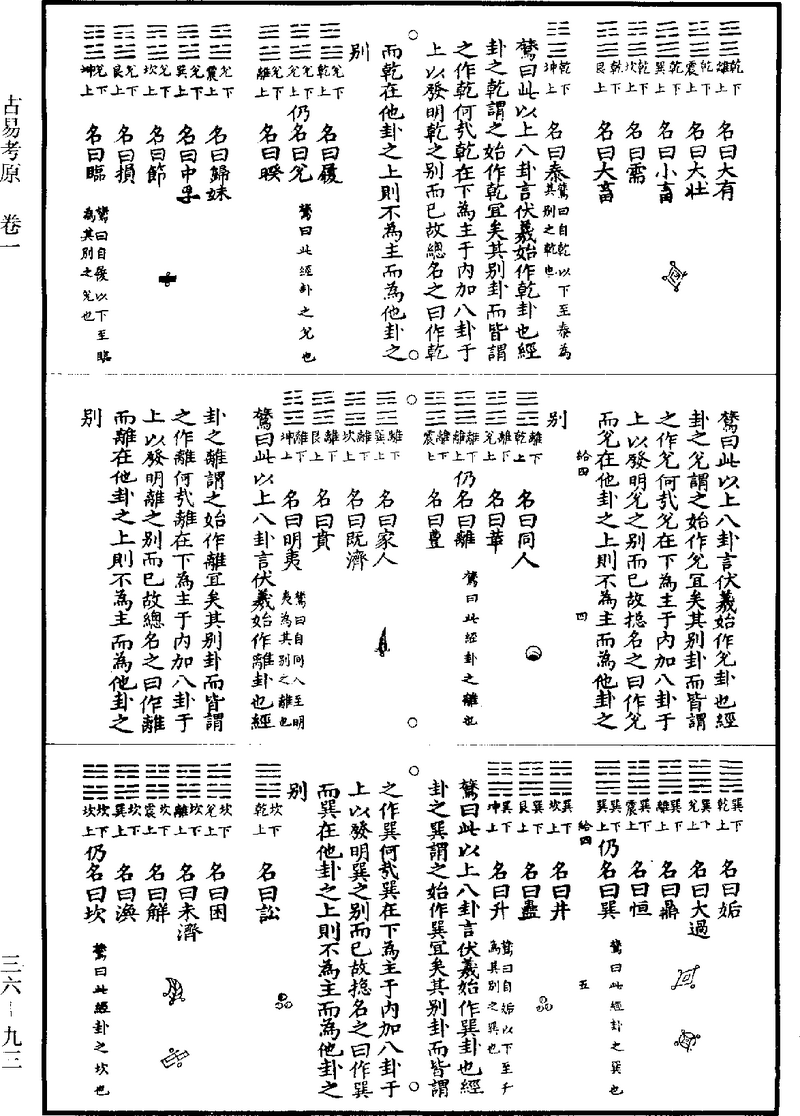 乾下離上 名曰大有
乾下震上 名曰大壯
乾下巽上 名曰小畜
乾下坎上 名曰需
乾下艮上 名曰大畜
乾下坤上 名曰泰 鷟曰自乾以下至泰為其別之乾也
鷟曰此以上八卦言伏羲始作乾卦也經
卦之乾謂之始作乾宜矣其別卦而皆謂
之作乾何哉乾在下為主于內加八卦于
上以發明乾之別而已故總名之曰作乾
而乾在他卦之上則不為主而為他卦之
別
兌下乾上 名曰履
兌下兌上 仍名曰兌 鷟曰此經卦之兌也
兌下離上 名曰睽
兌下震上 名曰歸妹
兌下巽上 名曰中孚
兌下坎上 名曰節
兌下艮上 名曰損
兌下坤上 名曰臨 鷟曰自履以下至臨為其別之兌也
鷟曰此以上八卦言伏羲始作兌卦也經
卦之兌謂之始作兌宜矣其別卦而皆謂
之作兌何哉兌在下為主于內加八卦于
上以發明兌之別而已故摠名之曰作兌
而兌在他卦之上則不為主而為他卦之
給四 四
別
離下乾上 名曰同人
離下兌上 名曰革
離下離上 仍名曰離 鷟曰此經卦之離也
離下震上 名曰豊
離下巽上 名曰家人
離下坎上 名曰既濟
離下艮上 名曰賁
離下坤上 名曰明夷 鷟曰自同人至明夷為其別之離也
鷟曰此以上八卦言伏羲始作離卦也經
卦之離謂之始作離宜矣其別卦而皆謂
之作離何哉離在下為主于內加八卦于
上以發明離之別而已故總名之曰作離
而離在他卦之上則不為主而為他卦之
別
巽下乾上 名曰姤
巽下兌上 名曰大過
巽下離上 名曰鼎
巽下震上 名曰恒
巽下巽上 仍名曰巽 鷟曰此經卦之巽也
給四 五
巽下坎上 名曰井
巽下艮上 名曰蠱
巽下坤上 名曰升 鷟曰自姤以下至升為其別之巽也
鷟曰此以上八卦言伏羲始作巽卦也經
卦之巽謂之始作巽宜矣其別卦而皆謂
之作巽何哉巽在下為主于內加八卦于
上以發明巽之別而已故摠名之曰作巽
而巽在他卦之上則不為主而為他卦之
別
坎下乾上 名曰訟
坎下兌上 名曰困
坎下離上 名曰未濟
坎下震上 名曰解
坎下巽上 名曰渙
坎下坎上 仍名曰坎 鷟曰此經卦之坎也
古易考原 卷一
三六—九三